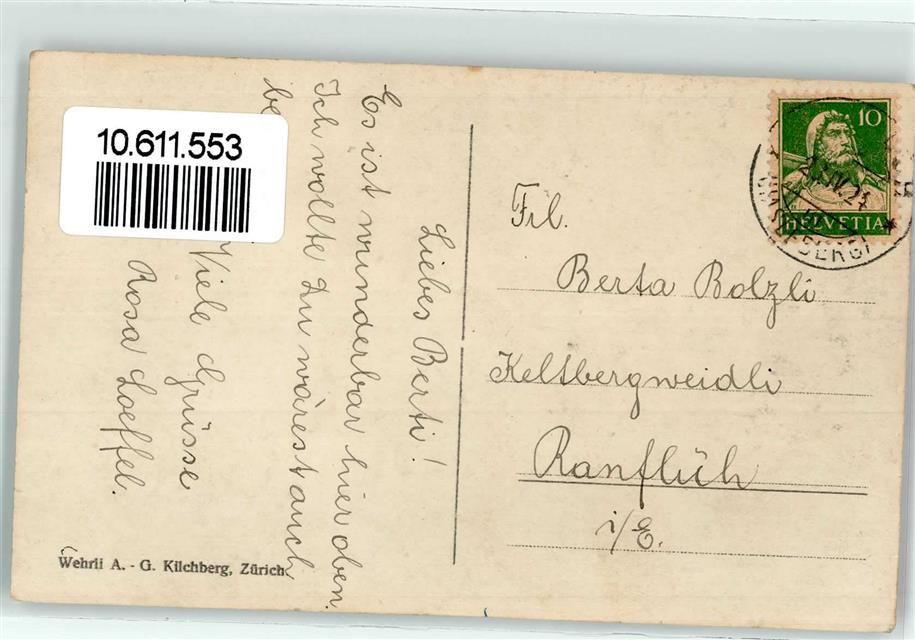 10.611.553
Liebes Berti!
Es ist wunderbar hier oben.
Ich wollte Du wärest auch
Viele Grüsse
Rosa Loeffel.
Wehrli A. - G. Kilchberg, Zürich
10
HELVETIA
Frl.
Berta Bolzli
Keltbergweidli
Ranflüh
i/E.